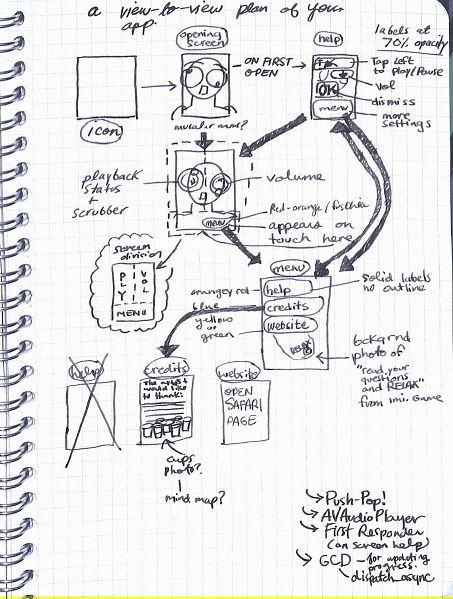 a view-to-view plan of your
app.
labels at
70% opacity
opening
screen
help
ON FIRST
OPEN
Tap left
to Play/Pause
vol
OK
dismiss
menu
more
settings
icon
muscular arms?
playback
status
+
scrubber
volume
Red-orange/
menu
appears on
touch here
screen
division
PLY
VOL
MENU
menu
orangey red
help
solid labels
no outline
blue
credits
yellow
or
green
website
RELAX
bckgrnd
photo of
"read your
questions
and RELAX"
from imi. Game
help
credits
website
The artist
would like
to thank:
OPEN
SAFARI
PAGE
cups
photo?
mind map?
Push-Pop!
AVAudioPlayer
First Responder
(on screen help)
GCD - for updating
progress.
dispatch_async